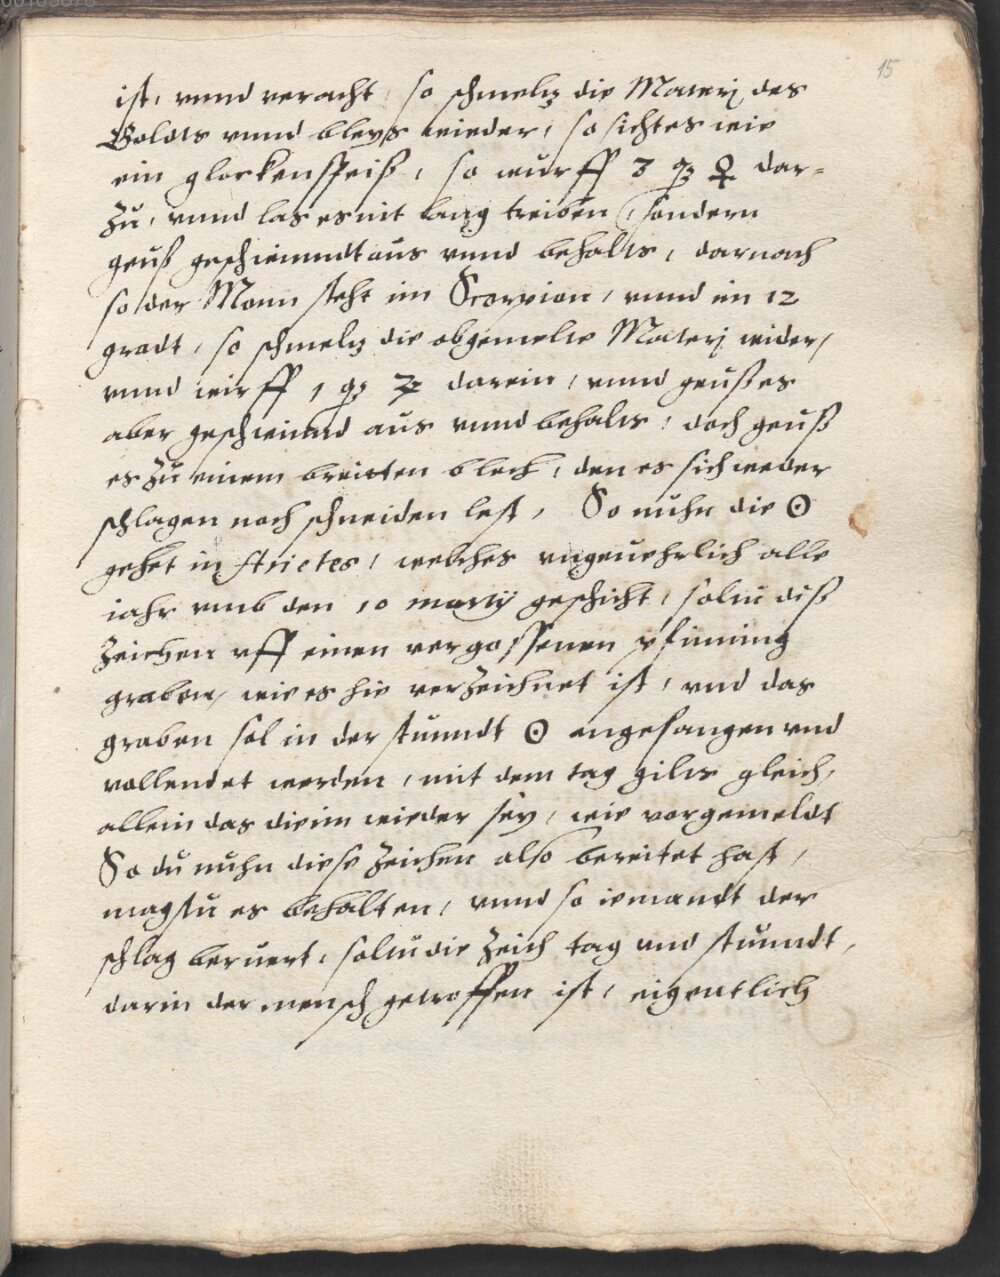 15
ist, vnnd veracht, so schmeltz die Materj des
Goldts vnnd bleys wieder, so sicht es wie
ein glockenspeiß, so wurff 3 qz ♀ dar=
zu, vnnd las es nit lang treiben, sondern
geuß geschwinndt aus vnnd behalts, darnach
so der Monn steht im Scorpion, vnnd im 12
gradt, so schmeltz die obgemelte Materj wider,
vnnd wirff 1 qz ♃ darein, vnnd geuß es
aber geschwinnd aus vnnd behalts, doch geuß
es zu einem breitten blech, den es sich weder
schlagen noch schneiden lest, So nuhn die ☉
gehet in Arietes, welches vngeuehrlich alle
iahr vmb den 10 martij geschicht, soltu diß
Zeichen vff einen vergossenen pfinning
graben, wie es hie verzeichnet ist, vnd das
graben sol in der stunndt ☉ angefangen vnd
vollendet werden, mit dem tag gilts gleich,
allein das die im wieder sey, wie vorgemeldt
So du nuhn diese Zeichen also bereitet hast,
magstu es behalten, vnnd so iemandt der
schlag beruert, soltu die Zeich tag vnd stunndt,
darin der mensch getroffen ist, eigentlich